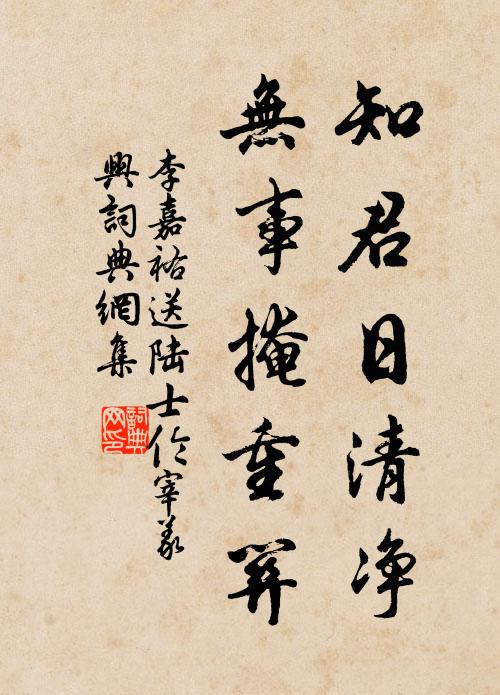 知君日清净
無事掩重關
李嘉祐送陆士伦宰義
興詞典網集
詞典
网印